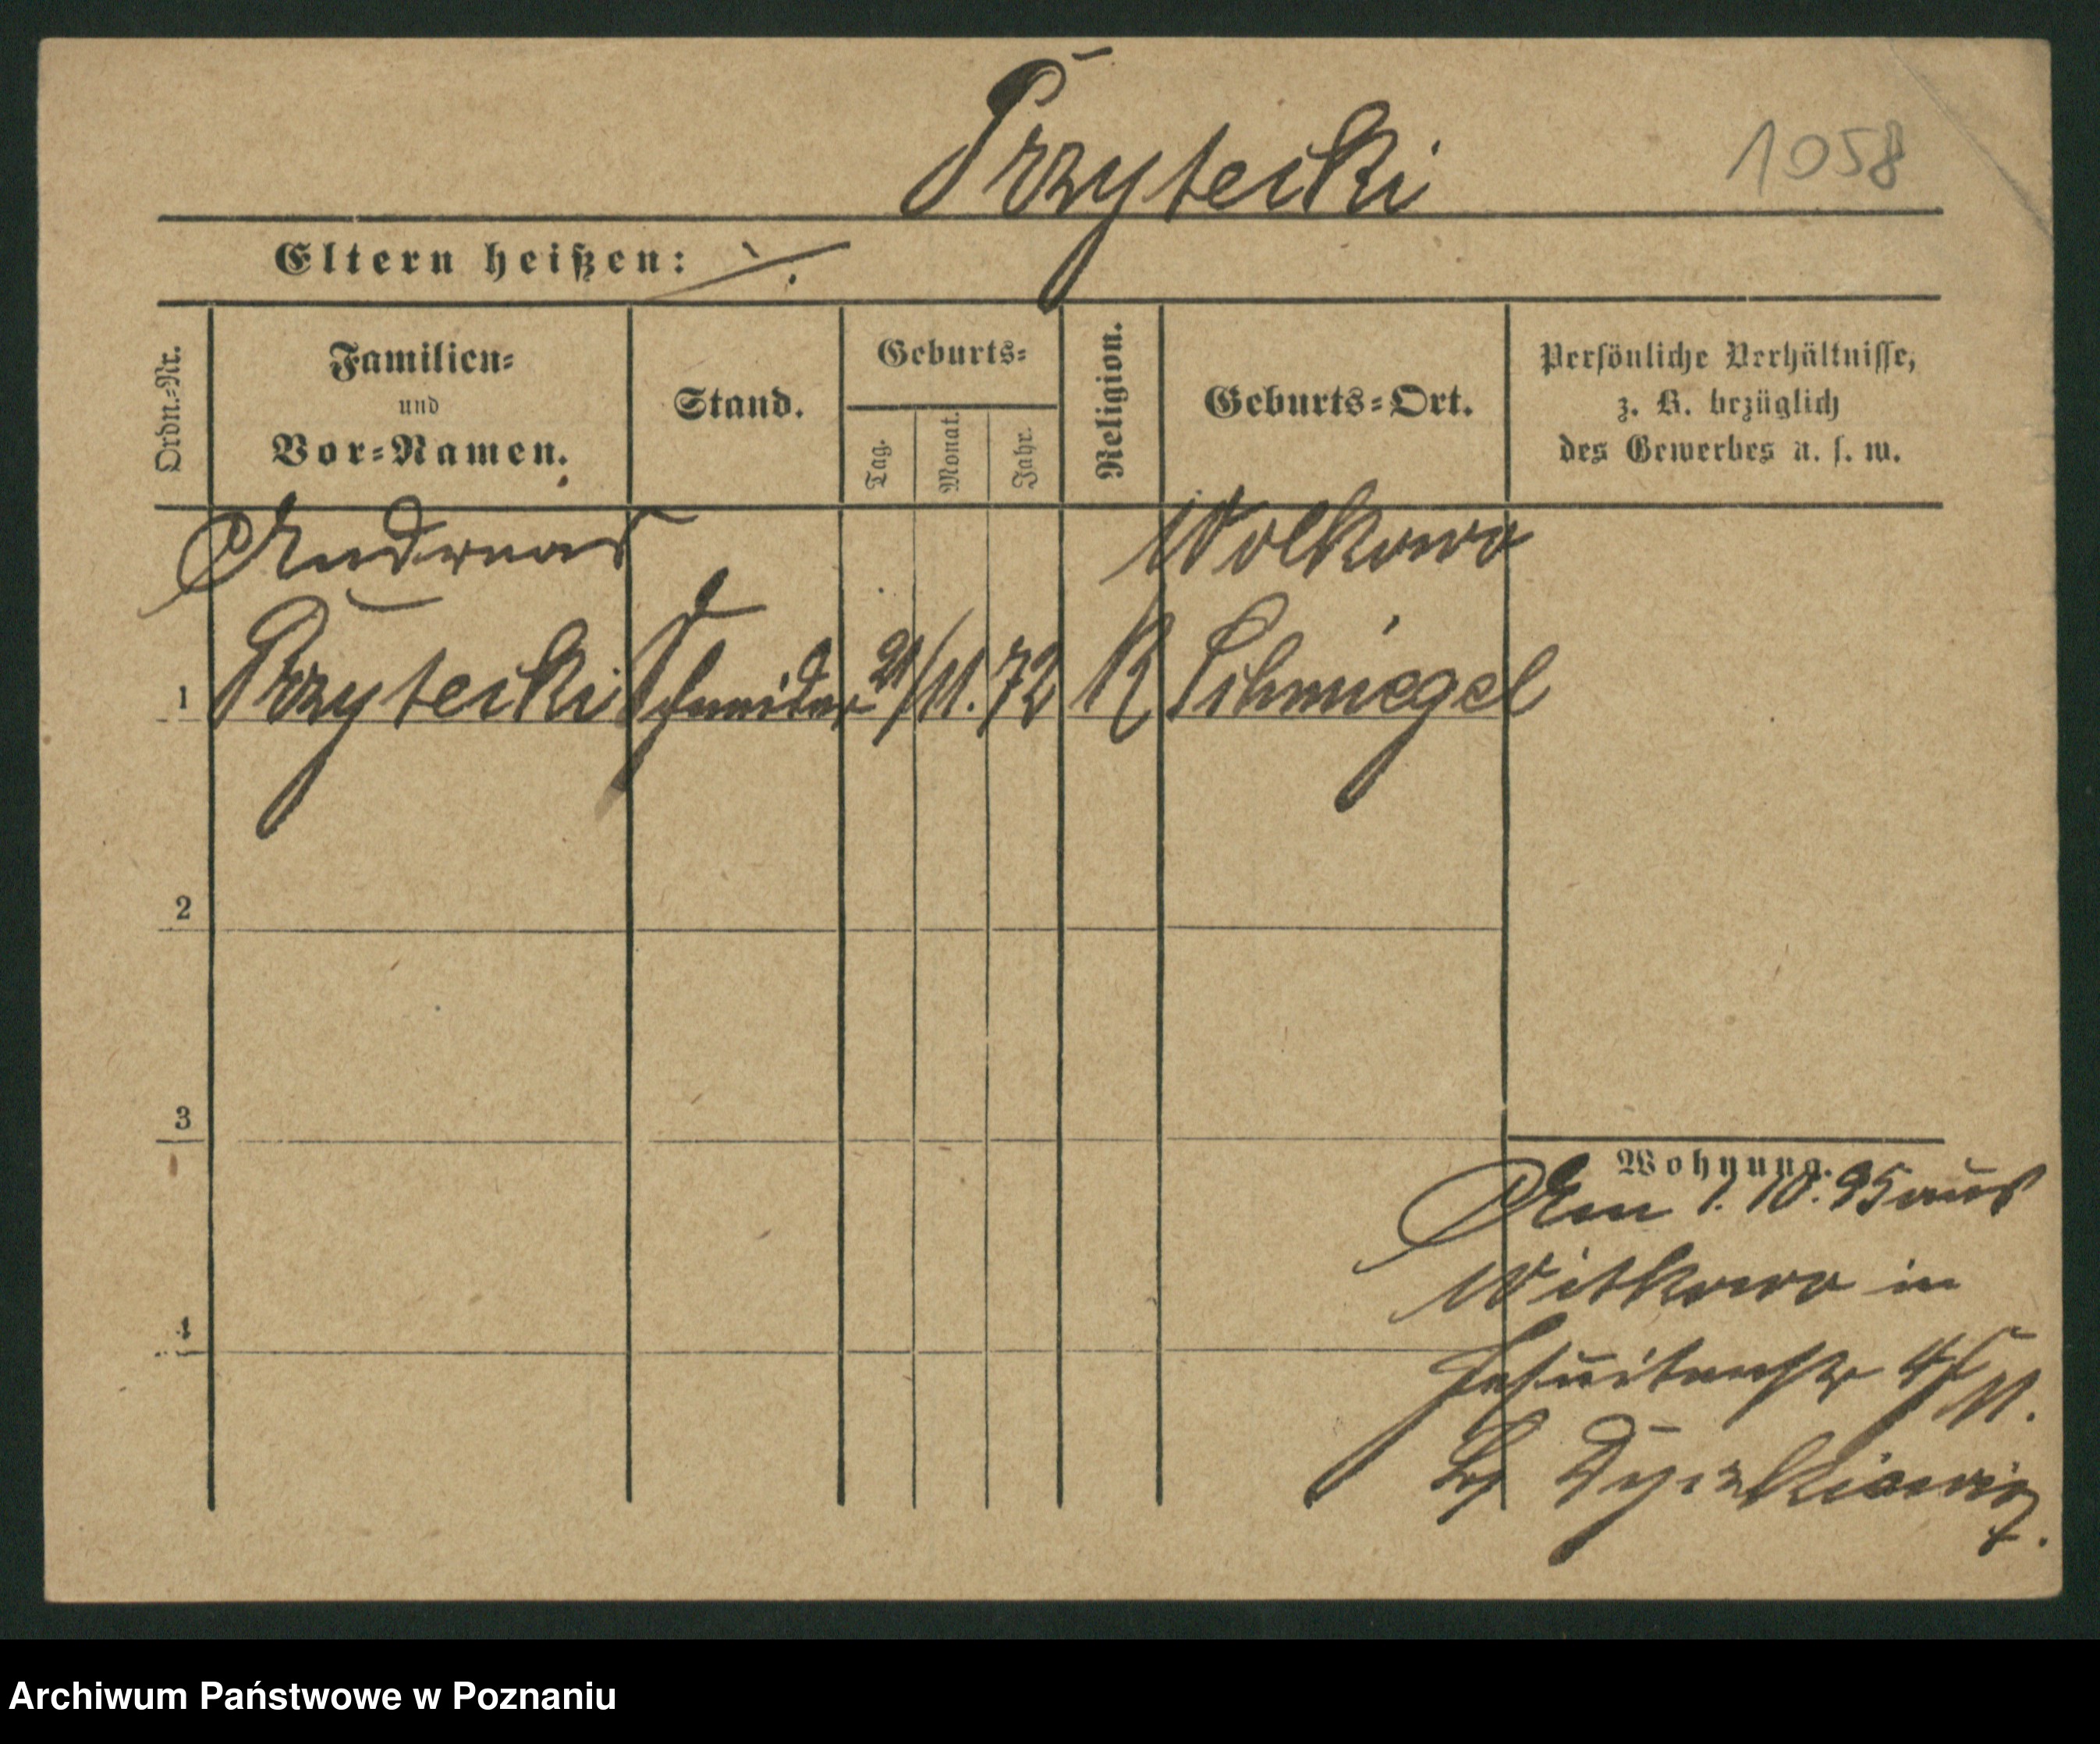 Przytecki
1058
Eltern heißen: ./.
Ordn.-Nr.
Familien-
und
Vor-Namen.
Stand.
Geburts-
Tag.
Monat.
Jahr.
Religion.
Geburts-Ort.
Persönliche Verhältnisse,
z. B. bezüglich
des Gewerbes u. s. w.
Andreas
Wolkowo
1 Przytecki Schneider 21/11. 72 K Schmiegel
2
3
4
Wohnung.
Am 1. 10. 95 aus
Witkowo in
Jesuitenstr
bei
Archiwum Państwowe w Poznaniu